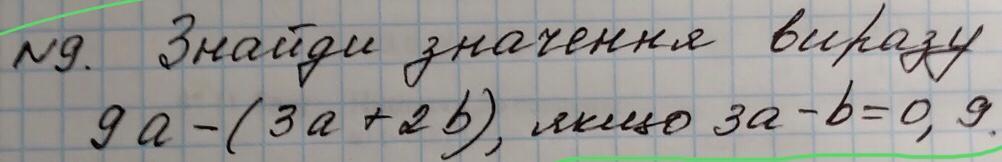 №9. Знайди значення виразу
9a-(3a+2b), якщо 3a-b=0,9.